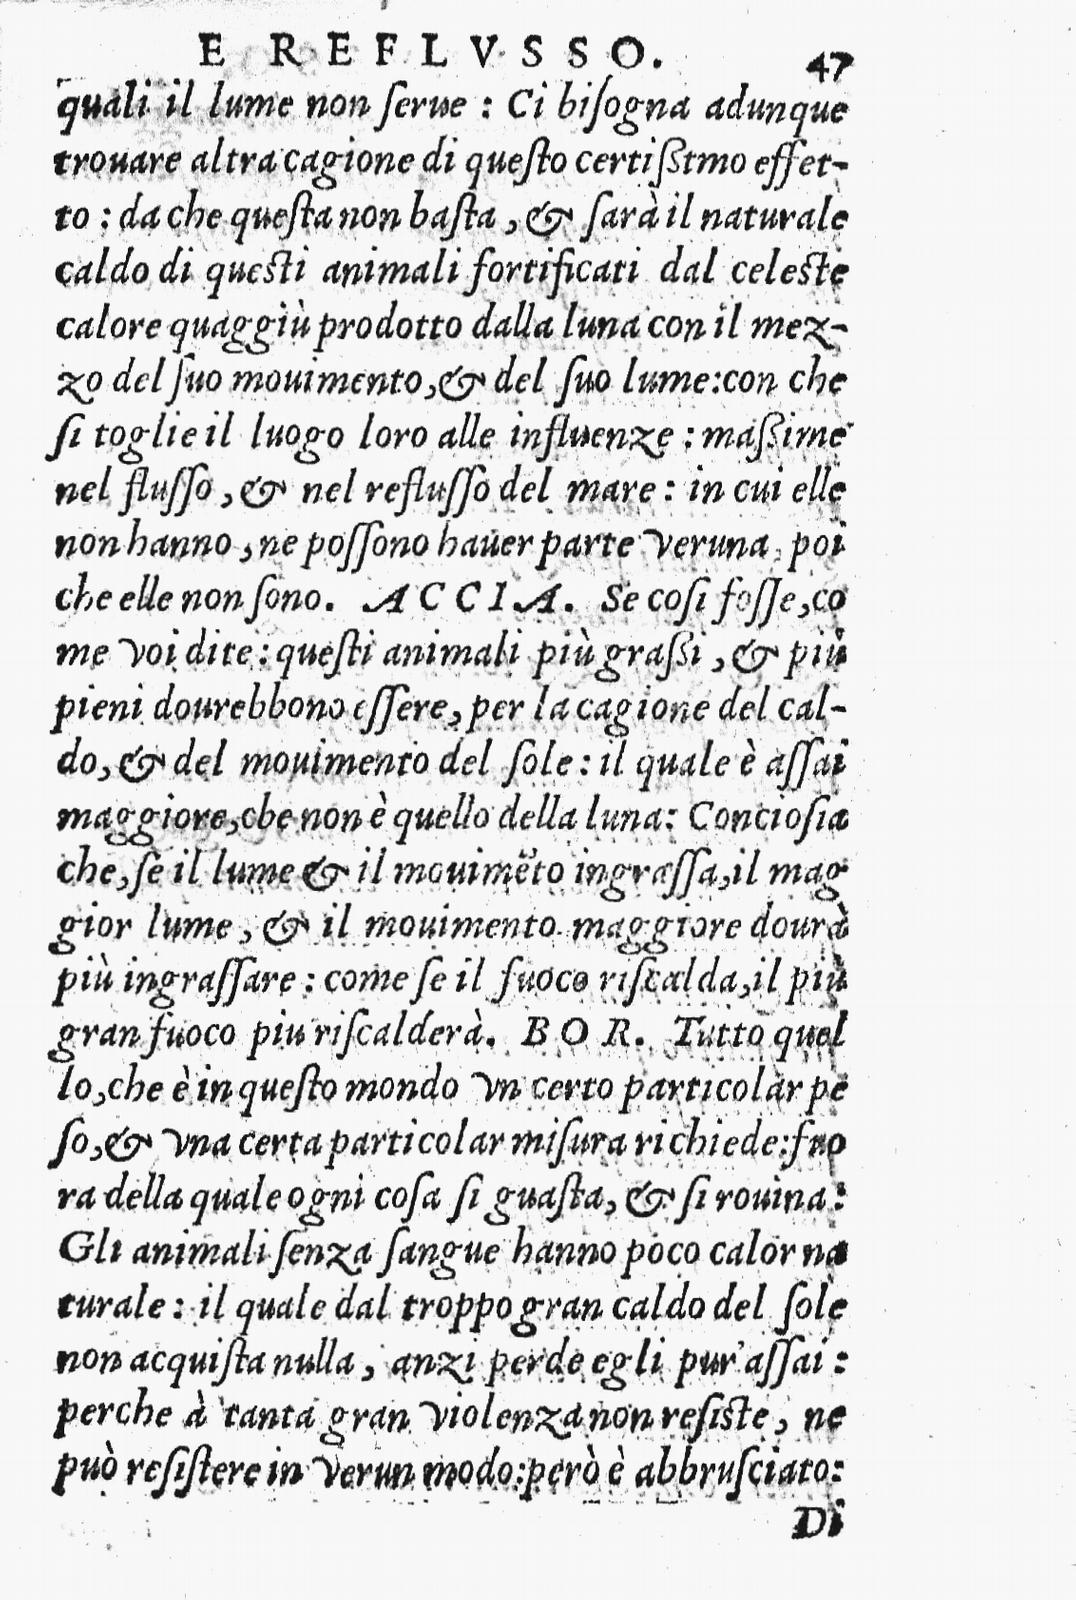 E REFLVSSO. 47
quali il lume non ſerue : Ci biſogna adunque
trouare altra cagione di queſto certiſstmo effet-
to : da che queſta non baſta , & ſarà il naturale
caldo di queſti animali fortificati dal celeſte
calore quaggiù prodotto dalla luna con il mez-
zo del ſuo mouimento,& del ſuo lume:con che
ſi toglie il luogo loro alle influenze : maſsime
nel fluſſo , & nel refluſſo del mare : in cui elle
non hanno , ne poſſono hauer parte veruna, poi
che elle non ſono. ACCIA. Se coſi foſſe,co
me voi dite : queſti animali più graſsi , & più
pieni dourebbono eſſere, per la cagione del cal-
do, & del mouimento del ſole : il quale è aſſai
maggiore,che non è quello della luna: Concioſia
che, ſe il lume & il mouimẽto ingraſſa,il mag
gior lume , & il mouimento maggiore dourà
più ingraſſare : come ſe il fuoco riſcalda,il più
gran fuoco piu riſcalderà. BOR. Tutto quel
lo,che è in queſto mondo vn certo particolar pe
ſo,& vna certa particolar miſura richiede:fuo
ra della quale ogni coſa ſi guaſta, & ſi rouina :
Gli animali ſenza ſangue hanno poco calor na
turale : il quale dal troppo gran caldo del ſole
non acquiſta nulla , anzi perde egli pur' aſſai :
perche à tanta gran violenza non reſiste , ne
può reſiſtere in verun modo:però è abbruſciato:
Di